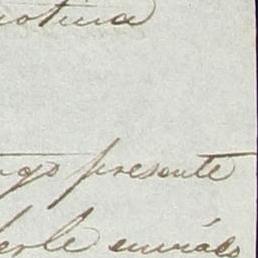 notina
ngo presente
erle enviado